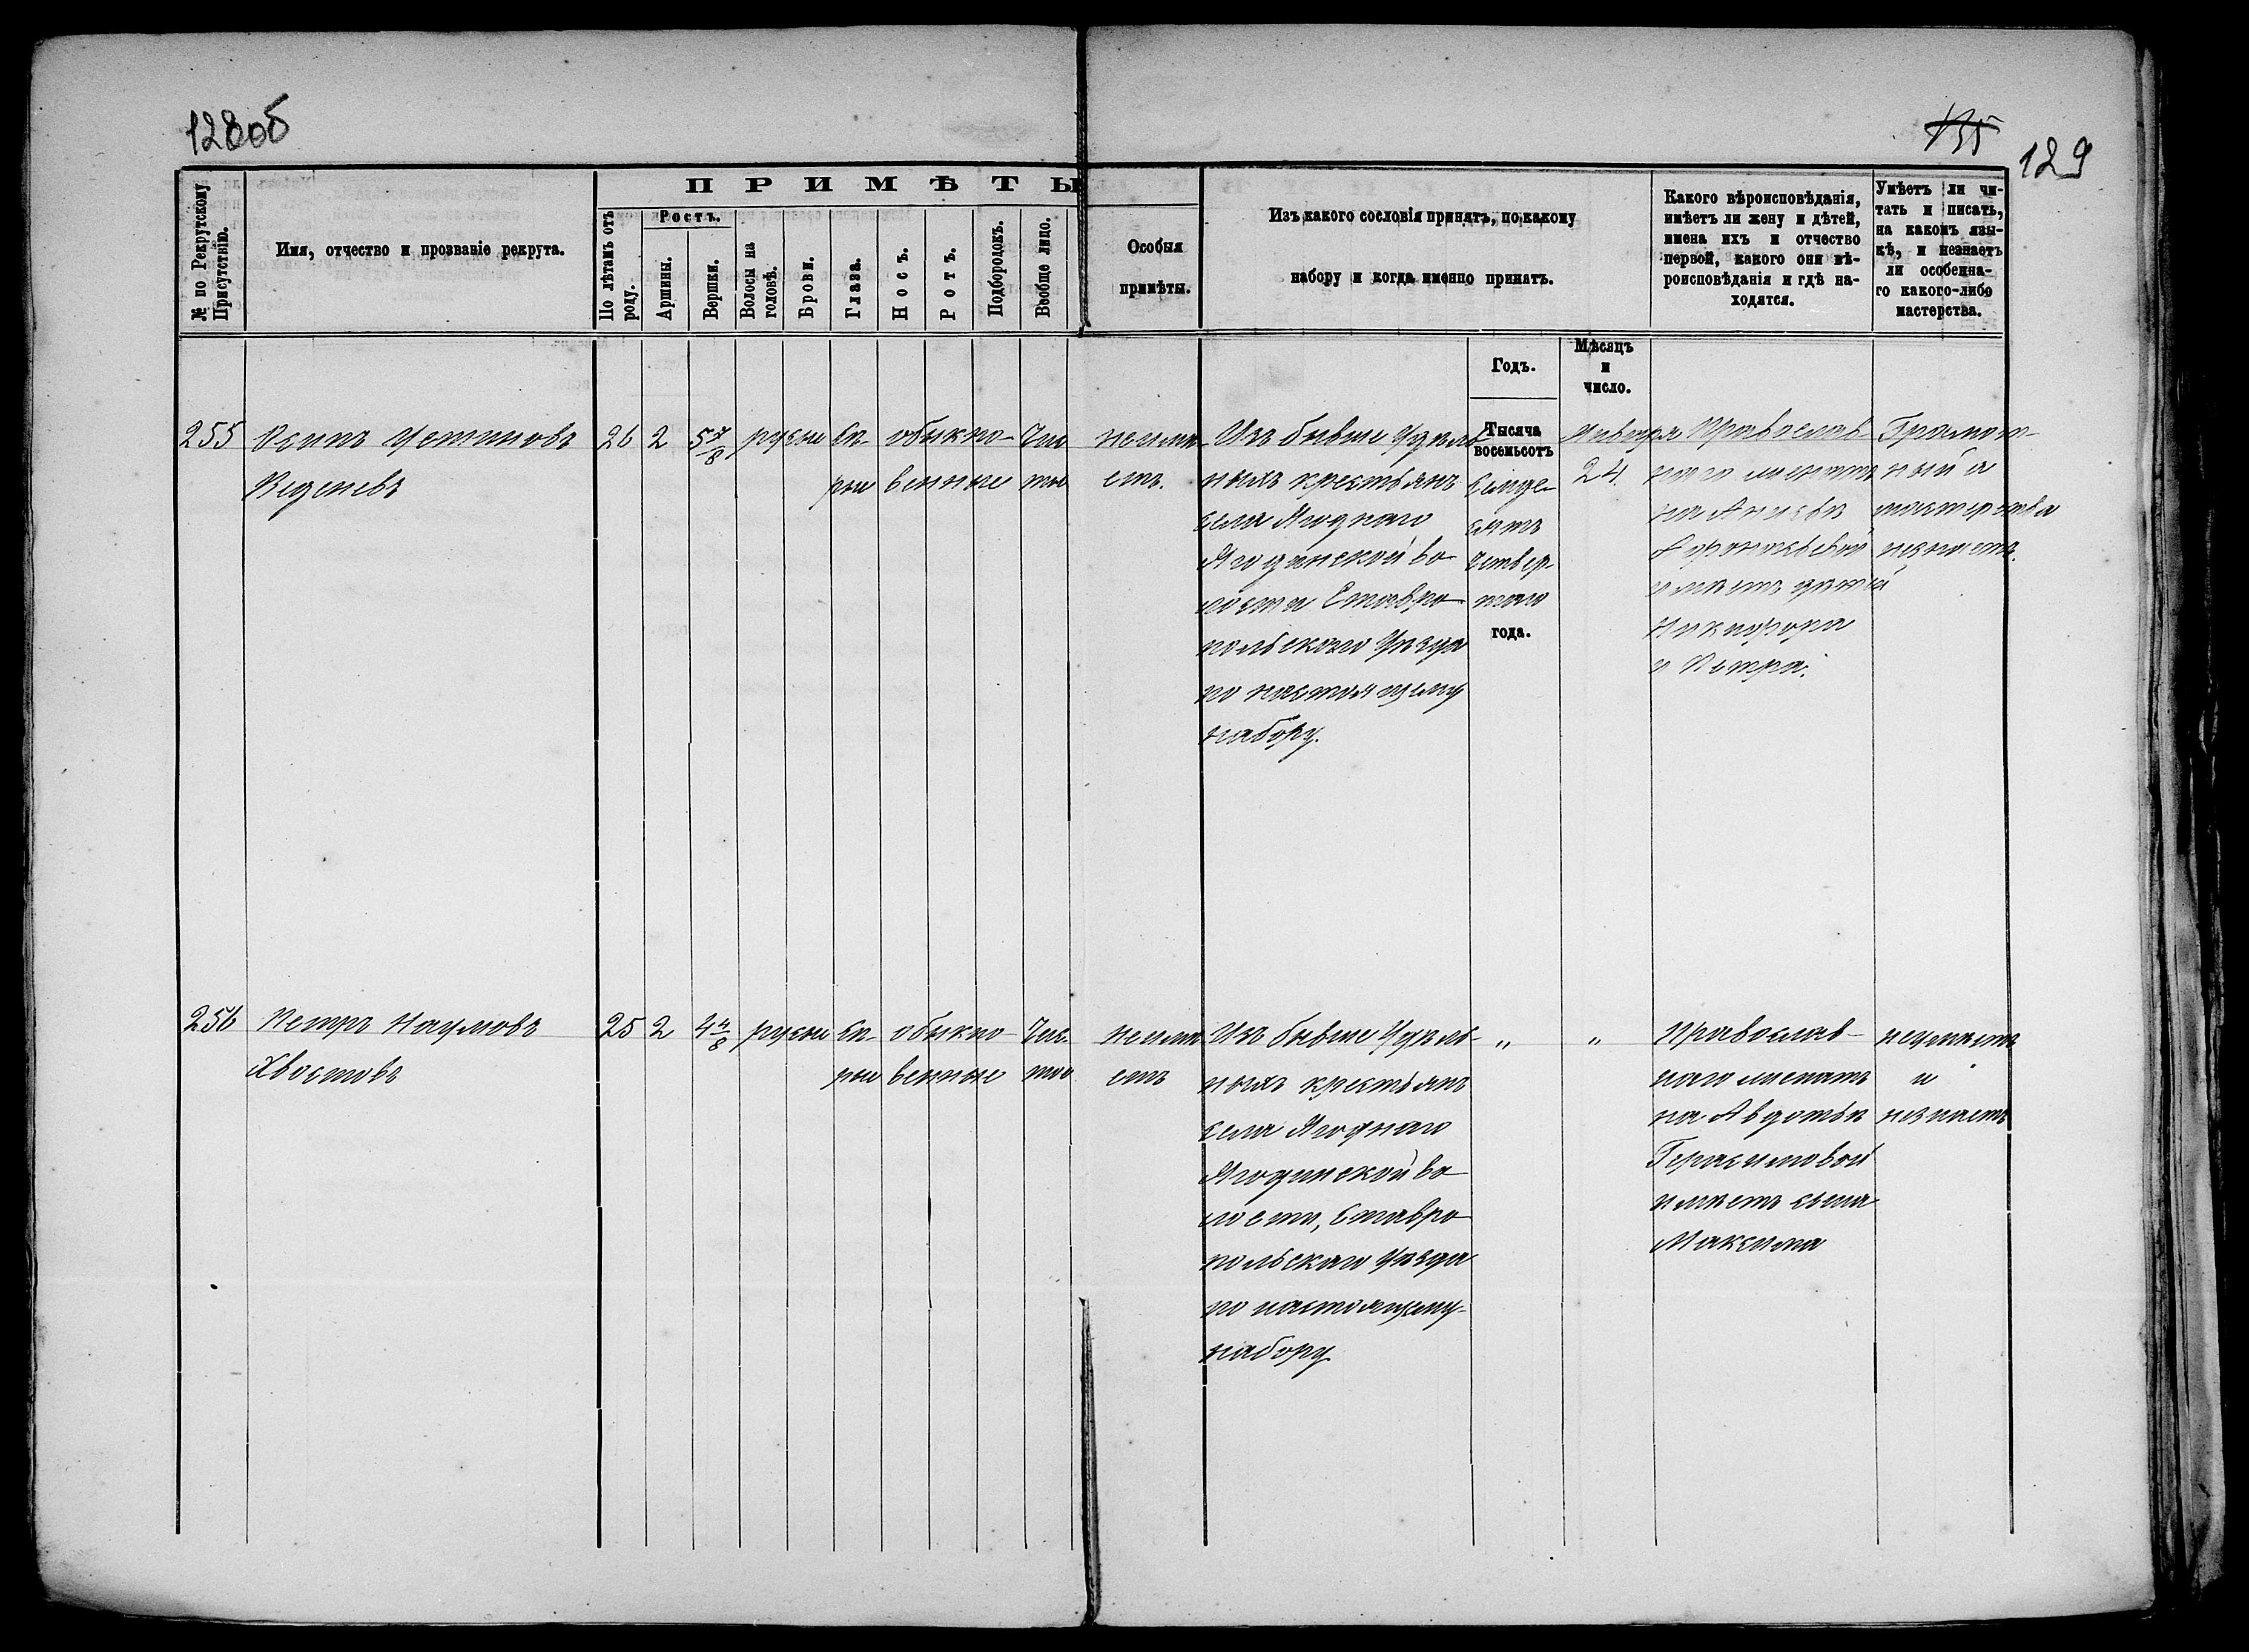 128об
135
129
№ по Рекрутскому Присутствію.
Имя, отчество и прозваніе рекрута.
ПРИМѢТЫ
По лѣтамъ отъ роду.
Ростъ.
Аршины.
Вершки.
Волосы на головѣ.
Брови.
Глаза.
Носъ.
Ротъ.
Подбородокъ.
Вообще лицо.
Особыя
примѣты.
Изъ какого сословія принятъ, по какому
набору и когда именно принятъ.
Какого вѣроисповѣданія,
имѣетъ ли жену и дѣтей,
имена ихъ и отчество
первой, какого они вѣ-
роисповѣданія и гдѣ на-
ходятся.
Умѣетъ ли чи-
тать и писать,
на какомъ язы-
кѣ, и незнаетъ
ли особенна-
го какого-либо
мастерства.
Годъ.
Мѣсяцъ
и
число.
255
Осипъ Устиновъ
Веденевъ
26
2
5 7/8
русые
сѣ-
рые
обыкно-
венные
Чис
тое
неимѣ-
етъ.
Изъ бывше Удѣль-
ныхъ крестьянъ
села Ягоднаго
Ягодинской во-
лости Ставро-
польскаго Уѣзда
по настоящему
набору.
Тысяча
восемьсотъ
семде-
сятъ
четвер-
таго
года.
Января
24.
Православ-
наго женатъ
на Анисьѣ
имѣетъ дѣтей
Никифора
и Петра.
Грамот-
ный а
мастерства
незнаетъ.
256
Петръ Наумовъ
Хвостовъ
25
2
4 4/8
русые
сѣ-
рые
обыкно-
венные
Чис-
тое
неимѣ-
етъ
Изъ бывше Удѣль-
ныхъ крестьянъ
села Ягоднаго
Ягодинской во-
лости, Ставро-
польскаго Уѣзда
по настоящему
набору
"
"
Православ-
наго женатъ
на Авдотьѣ
Герасимовой
имѣетъ сына
Максима
неумѣетъ
и
незнаетъ